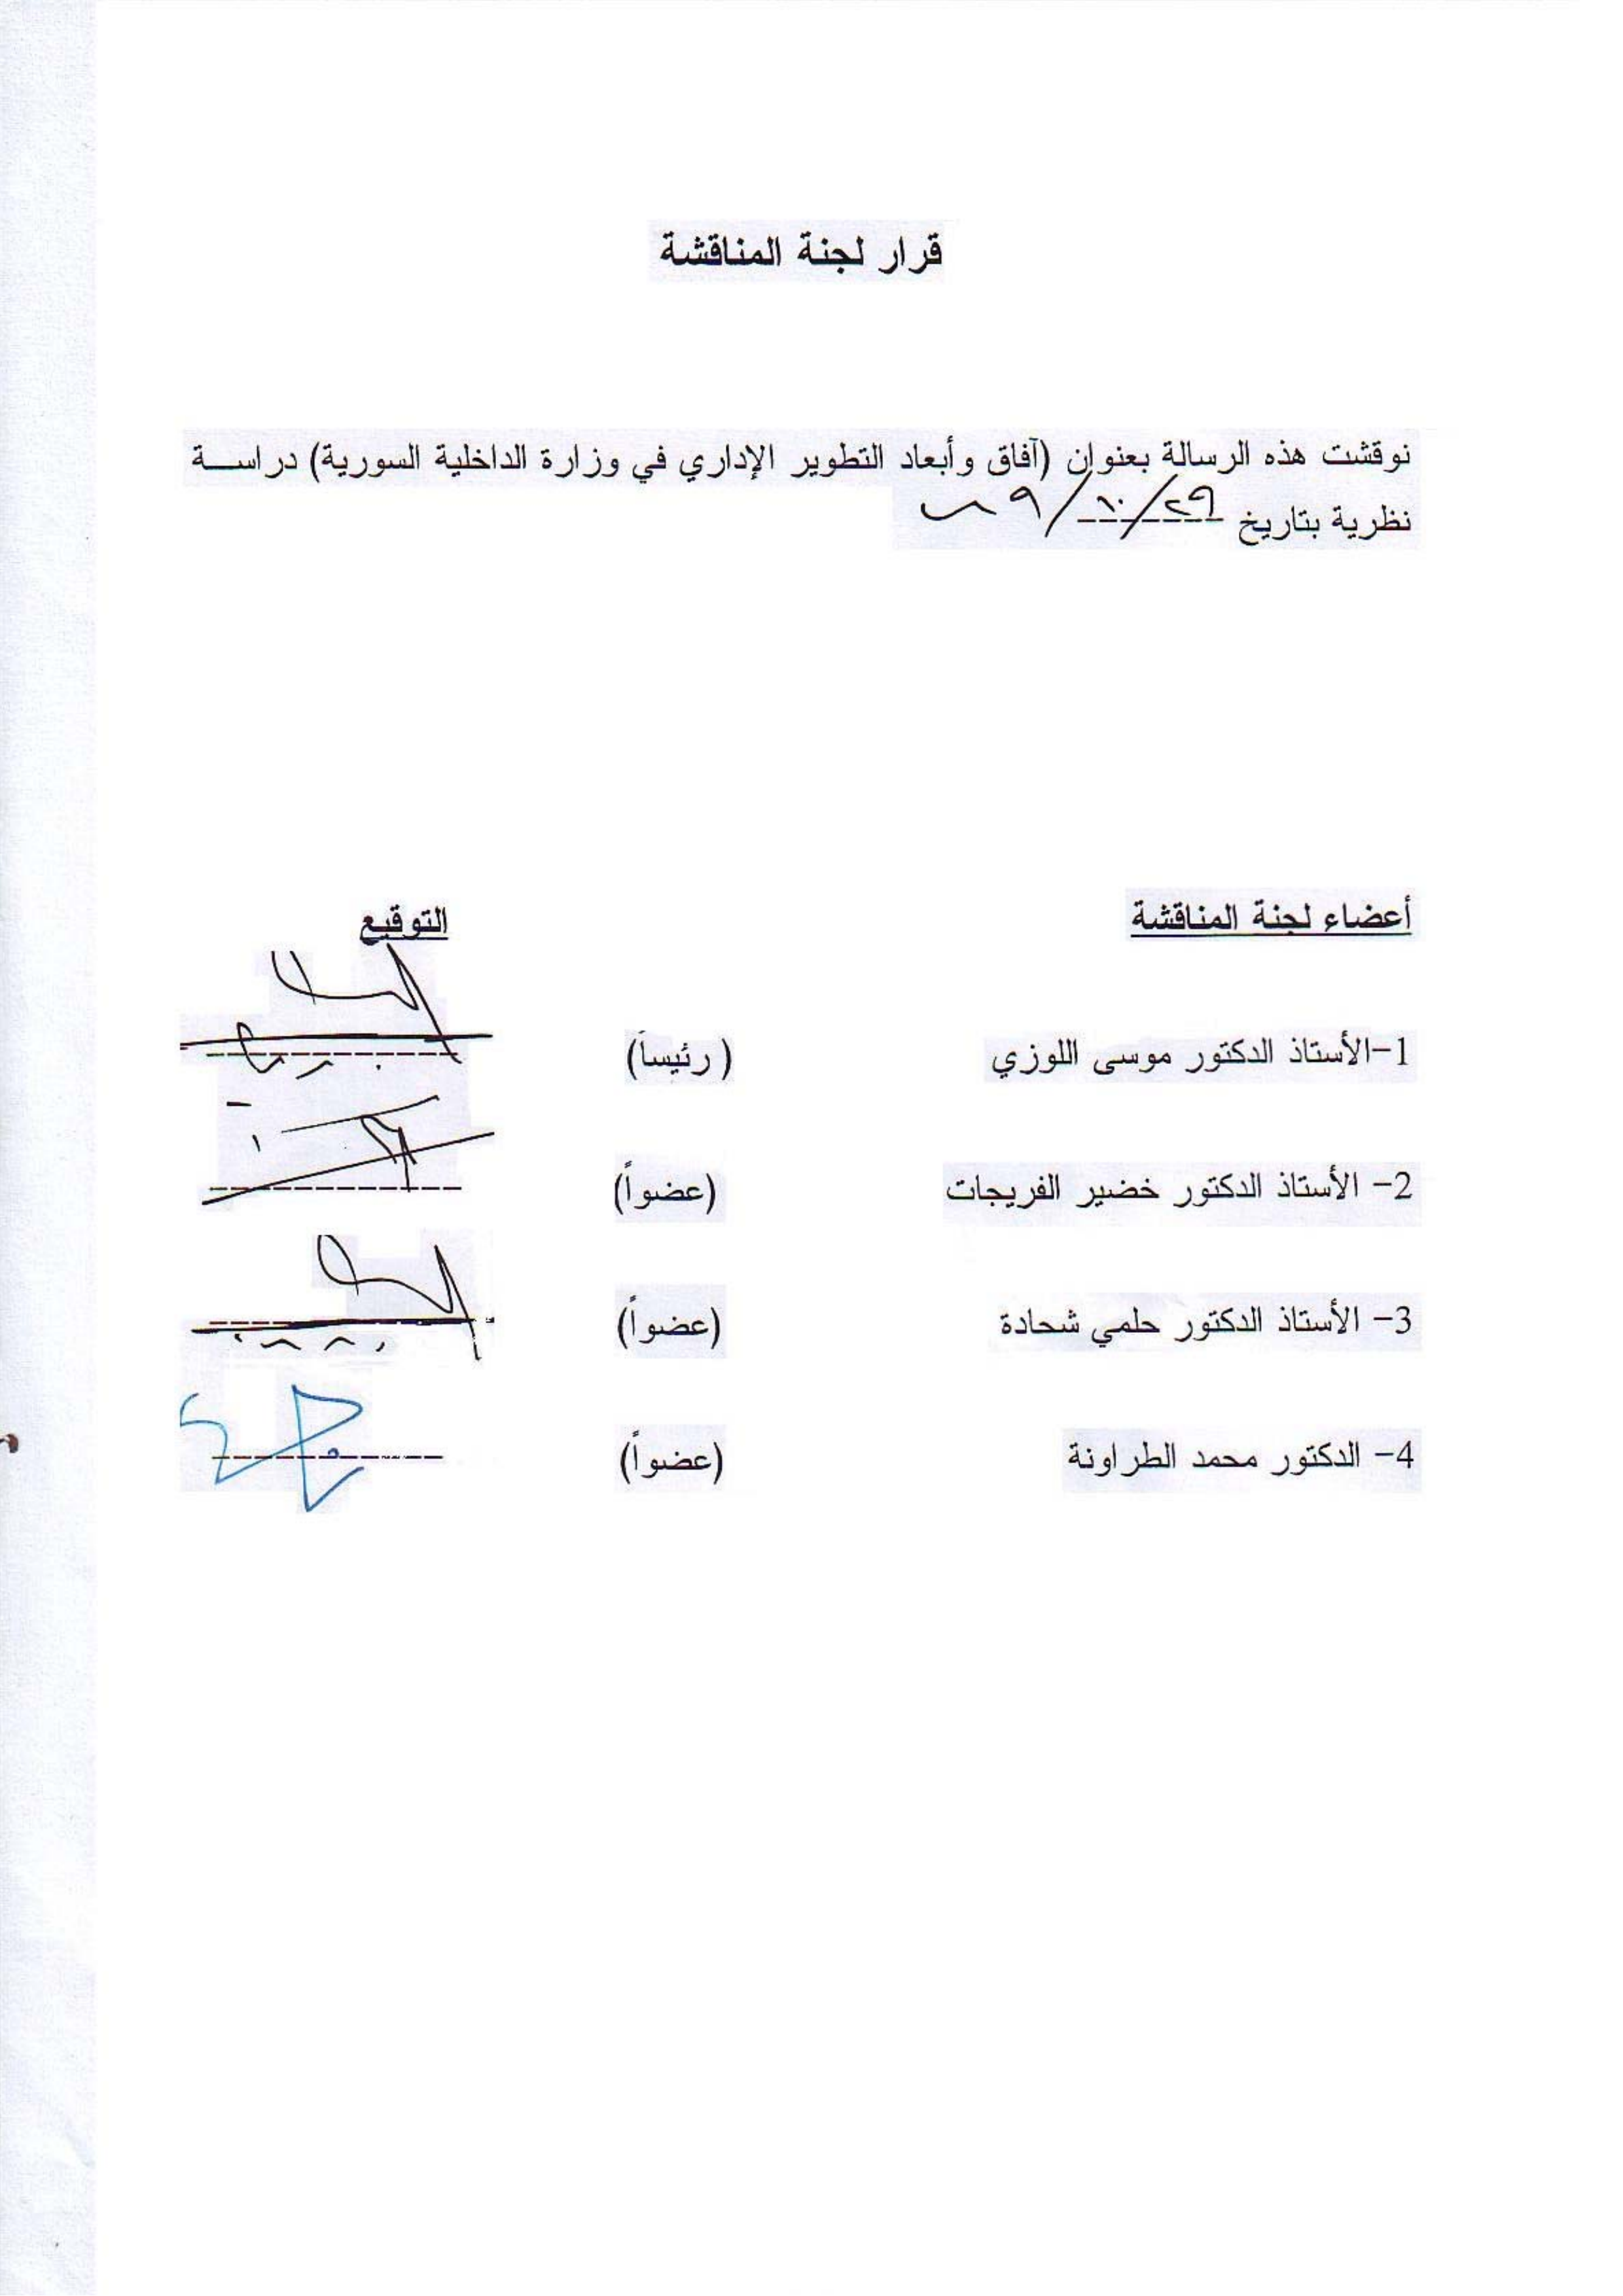 قرار لجنة المناقشة
نوقشت هذه الرسالة بعنوان (آفاق وأبعاد التطوير الإداري في وزارة الداخلية السورية) دراسة
نظرية بتاريخ ٢٩/١٠/
أعضاء لجنة المناقشة التوقيع
1-الأستاذ الدكتور موسى اللوزي (رئيساً)
2- الأستاذ الدكتور خضير الفريجات (عضواً)
3- الأستاذ الدكتور حلمي شحادة (عضواً)
4- الدكتور محمد الطراونة (عضواً)